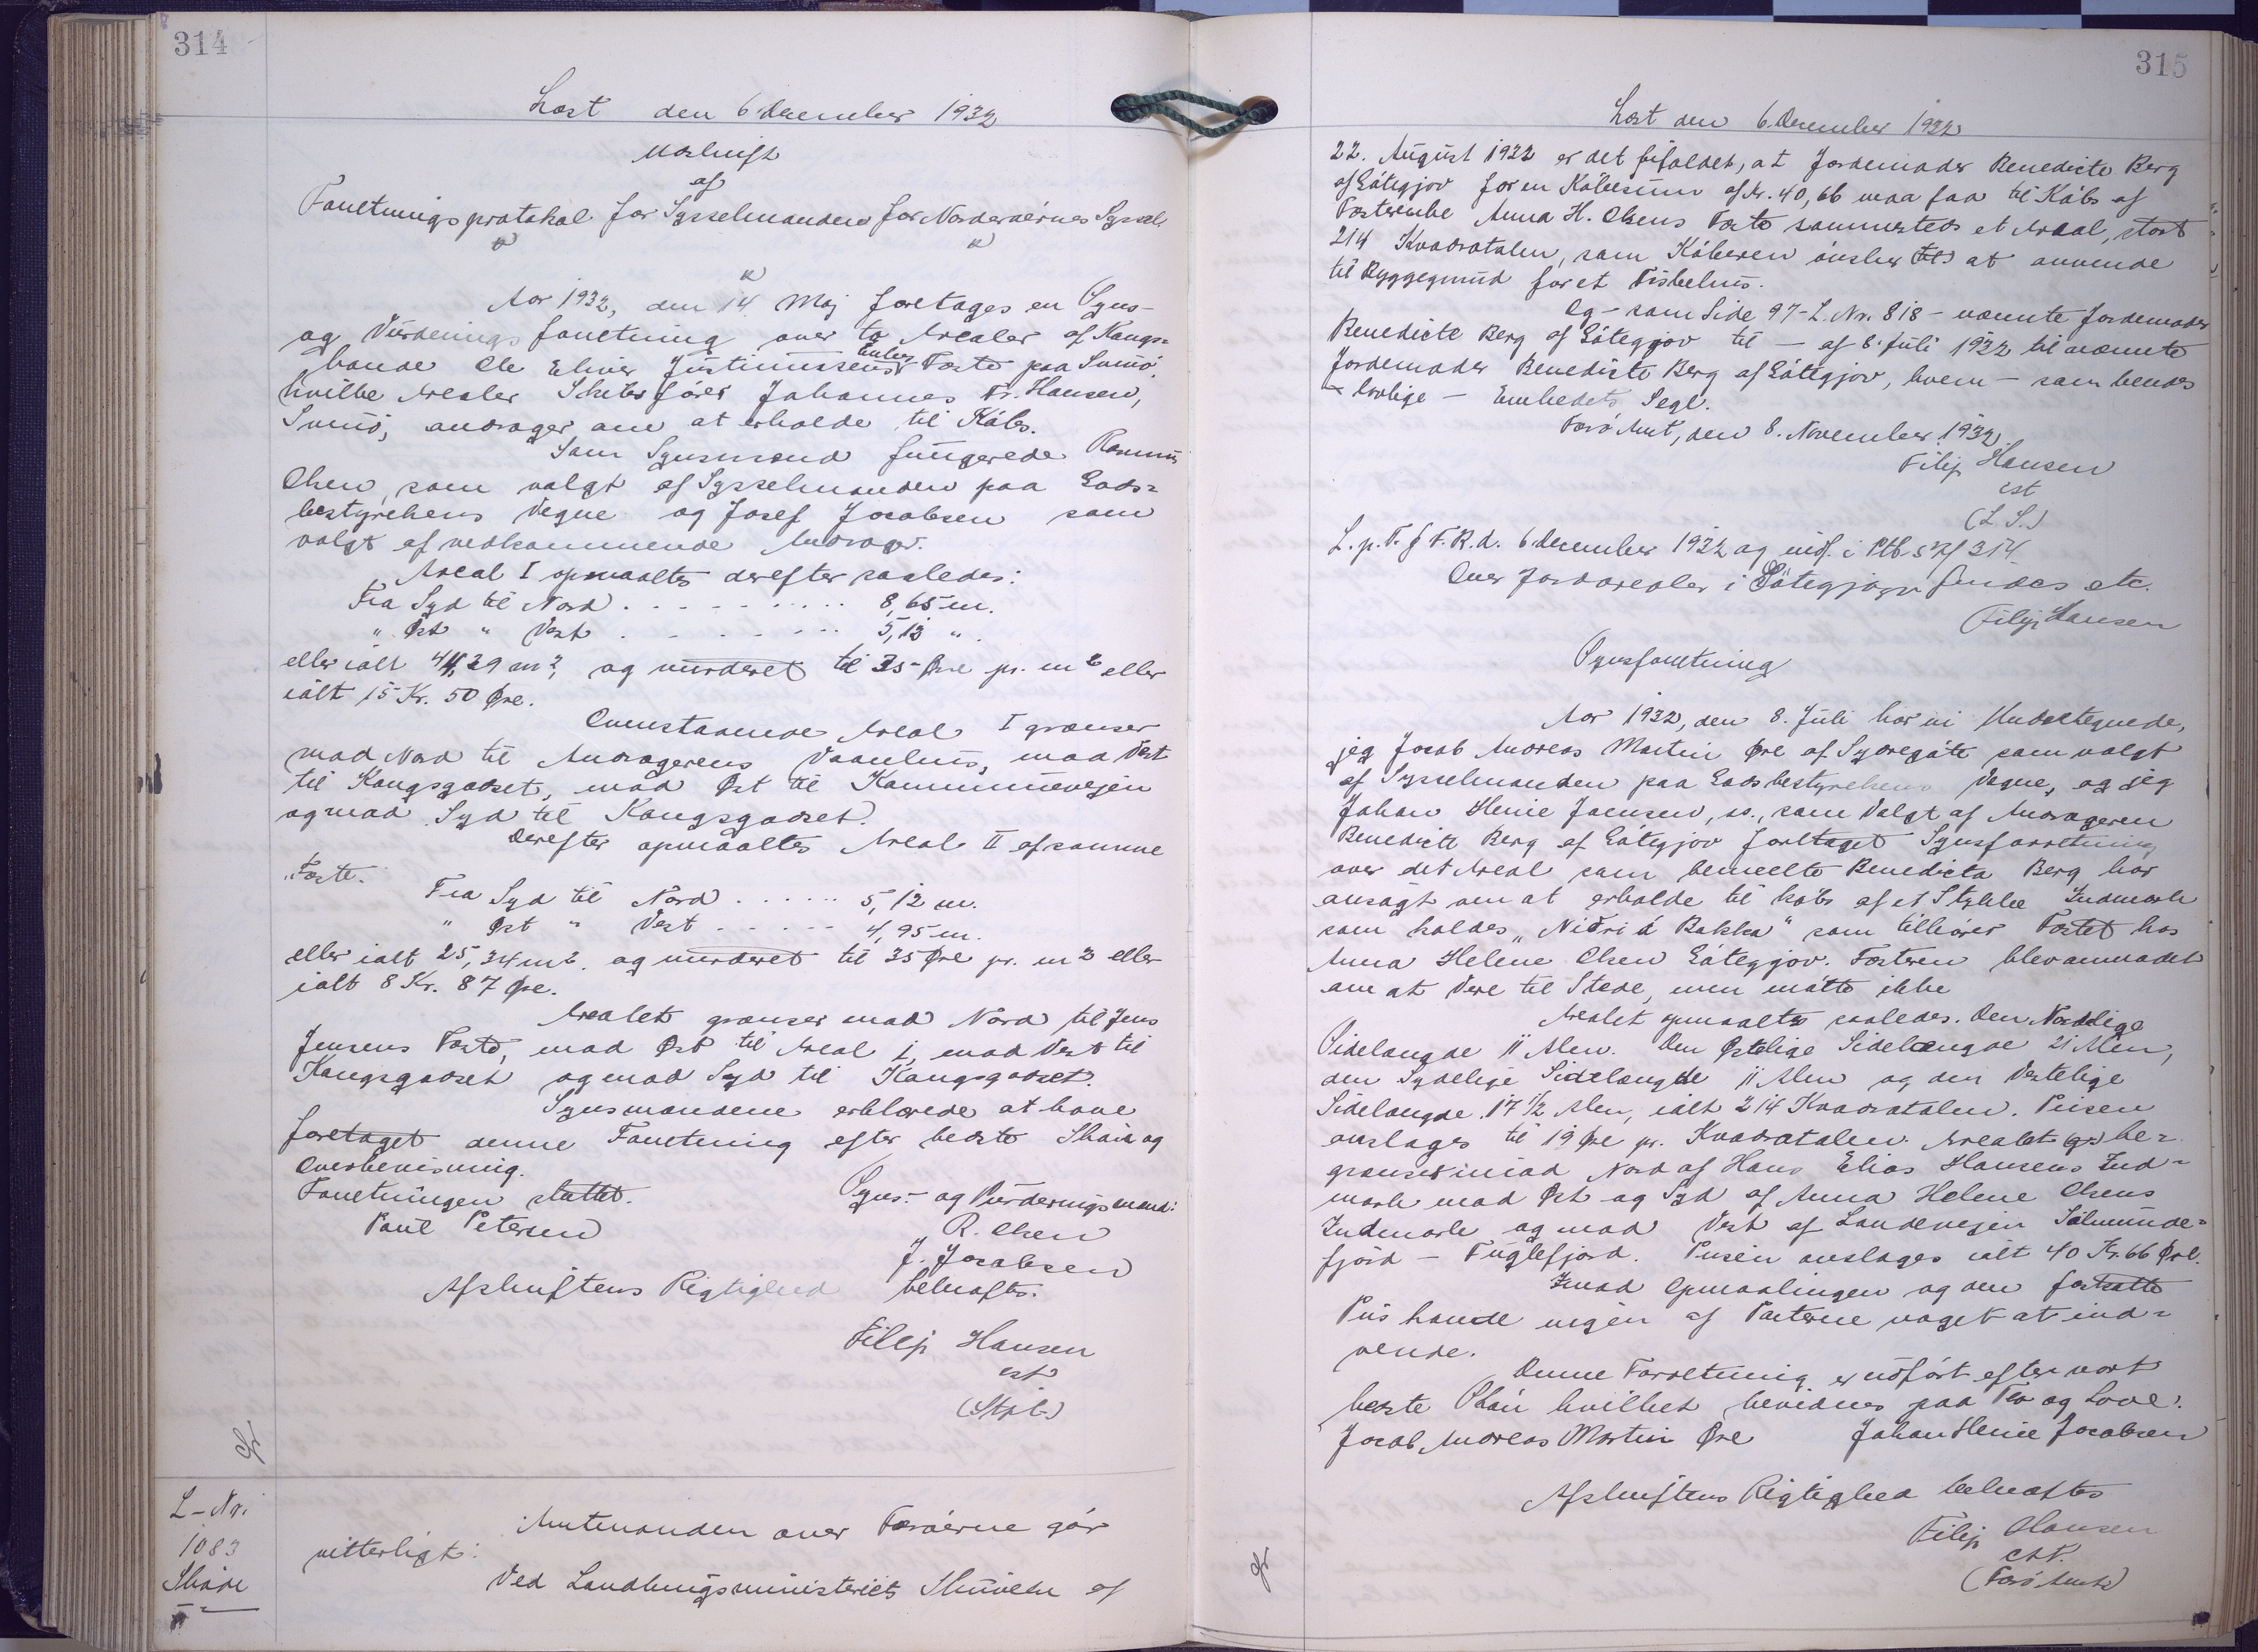 314
Læst den 6 December 1932
Udskrift
af
Forretningsprotokol for Sysselmanden for Norderøernes Syssel
Aar 1932, den 14. Maj foretages en Syns-
og Vurderingsforretning over to Arealer af Kongs-
bonde Ole Eliver Justinussens Enkes Fæste paa Svinø,
hvilke Arealer Skibsfører Johannes Fr. Hansen,
Svinø, andrager om at erholde til Købs.
Som Synsmænd fungerede Rasmus
Olsen, som valgt af Sysselmanden paa Gods-
bestyrelsens Vegne og Josef Jacobsen som
valgt af vedkommende Andrager.
Areal I opmaaltes derefter saaledes:
Fra Syd til Nord . . . . . . . . . . 8,65 m.
" Øst " Vest . . . . . . . . . 5,12 ".
eller ialt 44,29 m², og vurderet til 35 Øre pr. m² eller
ialt 15 Kr. 50 Øre.
Ovenstaaende Areal I grænser
mod Nord til Andragerens Vaanhus, mod Vest
til Kongsgodset, mod Øst til Kommunevejen
og mod Syd til Kongsgodset.
Derefter opmaaltes Areal II af samme
Fæste.
Fra Syd til Nord . . . . . . 5,12 m.
" Øst " Vest . . . . . . 4,95 m.
eller ialt 25,34 m². og vurderet til 35 Øre pr. m² eller
ialt 8 Kr. 87 Øre.
Arealet grænser mod Nord til Jens
Jensens Fæste, mod Øst til Areal I, mod Vest til
Kongsgodset og mod Syd til Kongsgodset.
Synsmændene erklærede at have
foretaget denne Forretning efter bedste Skøn og
Overbevisning.
Forretningen sluttet. Syns- og Vurderingsmænd:
Poul Petersen R. Olsen
J. Jacobsen
Afskriftens Rigtighed bekræftes.
Filip Hansen
cst
(Stpl.)
L-Nr.
1083
Skøde
Amtmanden over Færøerne gør
vitterligt:
Ved Landbrugsministeriets Skrivelse af
315
Læst den 6. December 1932
22. August 1932 er det bifaldet, at Jordemoder Benedicte Berg
af Gøtegjov for en Købesum af Kr. 40,66 maa faa til Købs af
Fæsterenke Anna H. Olsens Fæste sammesteds et Areal, stort
214 Kvadratalen, som Køberen ønsker til at anvende
til Byggegrund for et Fiskehus.
Og - som Side 97 - L. Nr. 818 - nævnte Jordemoder
Benedicte Berg af Gøtegjov til - af 8. Juli 1932 til nævnte
Jordemoder Benedicte Berg af Gøtegjov, hvem - som hendes
lovlige - Embedets Segl.
Færø Amt, den 8. November 1932.
Filip Hansen
cst
(L. S.)
L. p. F. f F. R. d. 6 December 1932 og indf. i Ptb. 314
Over Jordarealer i Gøtegjogv findes etc.
Filip Hansen
Synsforretning
Aar 1932, den 8. Juli har vi Undertegnede,
jeg Jacob Andreas Martin Øre af Sydregøte som valgt
af Sysselmanden paa Godsbestyrelsens Vegne, og jeg
Johan Henie Joensen, som Valgt af Andrageren
Benedicte Berg af Gøtegjov foretaget Synsforretning
over det Areal som bemeldte Benedicta Berg har
ansøgt om at erholde til købs af et Stykke Indmark
som kaldes "Niðri á Bakka" som tilhører Fæstet hos
Anna Helene Olsen Gøtegjov. Fæsteren blev anmodet
om at Være til Stede, men mötte ikke
Arealet opmaaltes saaledes. Den Nordlige
Sidelængde 11 Alen. Den Østelige Sidelængde 21 Alen,
den Sydelige Sidelængde 11 Alen og den Vestelige
Sidelængde 17 1/2 Alen, ialt 214 Kvadratalen. Prisen
anslages til 19 Øre pr. Kvadratalen. Arealet be-
grænses mod Nord af Hans Elias Hansens Ind-
mark mod Øst og Syd af Anna Helene Olsens
Indmark og mod Vest af Landevejen Sálmunde-
fjord - Fuglefjord. Prisen anslages ialt 40 Kr. 66 Øre.
Imod Opmaalingen og den fastsatte
Pris havde ingen af Parterne noget at ind-
vende.
Denne Forretning er udført efter vort
bedste Skøn hvilket bevidnes paa Tro og Love.
Jacob Andreas Martin Øre Johan Henie Jacobsen
Afskriftens Rigtighed bekræftes
Filip Hansen
cst.
(Færø Amt)